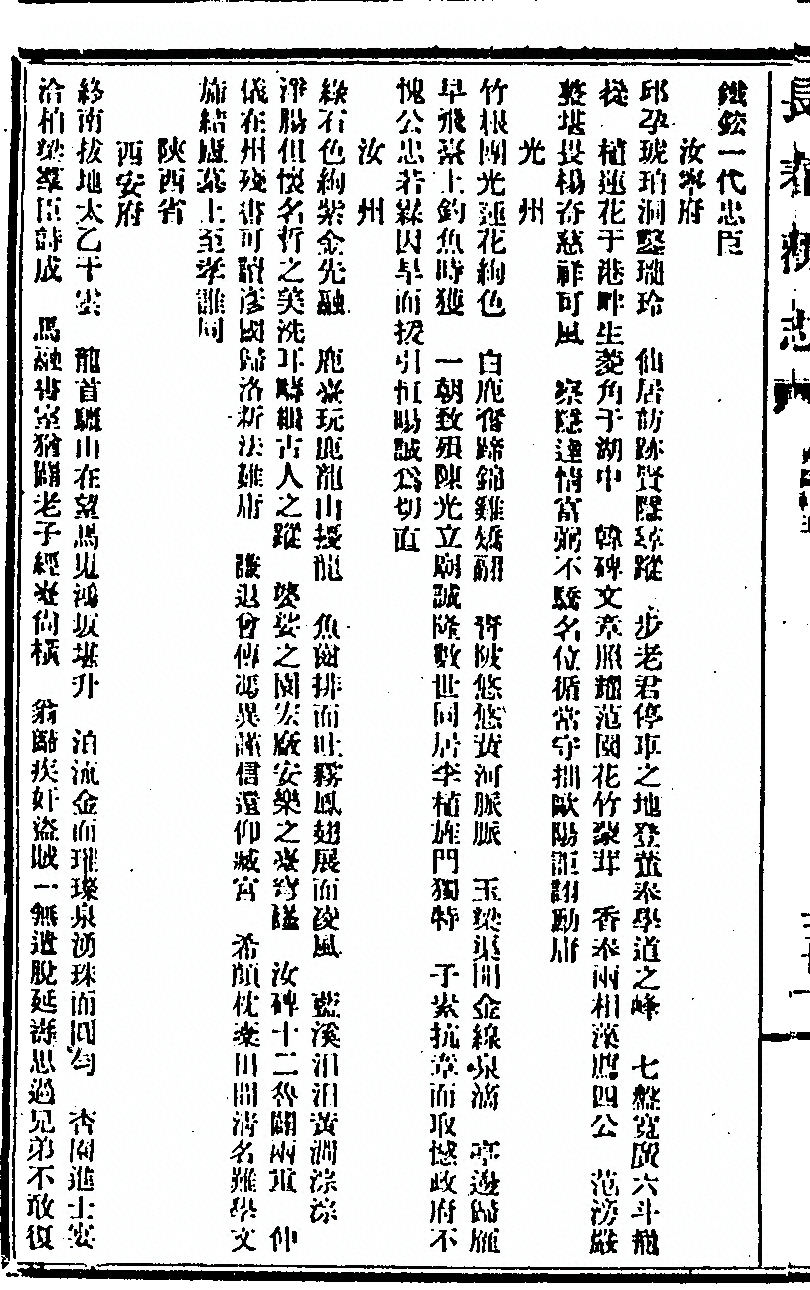 鐵鉉一代忠臣
汝寧府
邱孕琥珀洞鑿瓏玲 仙居訪跡賢隱尋蹤 步老君停車之地登董奉學道之峰 七盤寬廣六斗龍
從 植蓮花于港畔生菱角于湖中 韓碑文章照耀范園花竹蒙茸 香奉兩相藻薦四公 范滂嚴
整堪畏楊奇慈祥可風 察隱達情富弼不驕名位循常守拙歐陽詎詡勳庸
光州
竹根團光蓮花絢色 白鹿奮蹄錦雞矯翮 弩陂悠悠黃河脈脈 玉梁渠開金線泉滴 亭邊歸雁
早飛臺上釣魚時獲 一朝致殞陳光立廟誠隆數世同居李植旌門獨特 子素抗章而取憾政府不
愧公忠若縣因旱而援引恒暘誠為切直
汝州
綠石色絢紫金先融 鹿臺玩鹿龍山援龍 魚齒排而吐霧鳳翅展而凌風 藍溪汨汨黃澗淙淙
淨腸但懷名哲之美洗耳疇繼古人之蹤 婆娑之園宏敞安樂之臺穹窿 汝碑十二魯關兩重 仲
儀在州殘書可讀彥國歸洛新法難庸 謙退會傳馮異謹信還仰臧宮 希顏枕麥田間清名難學文
施結廬墓上至孝誰同
陝西省
西安府
終南拔地太乙干雲 龍首驪山在望馬嵬鴻坂堪升 泊流金而璀璨泉湧珠而圓勻 杏園進士宴
洽柏梁羣臣詩成 馬融書室猶關老子經臺尚橫 翁歸疾奸盜賊一無遺脫延壽思過兄弟不敢復